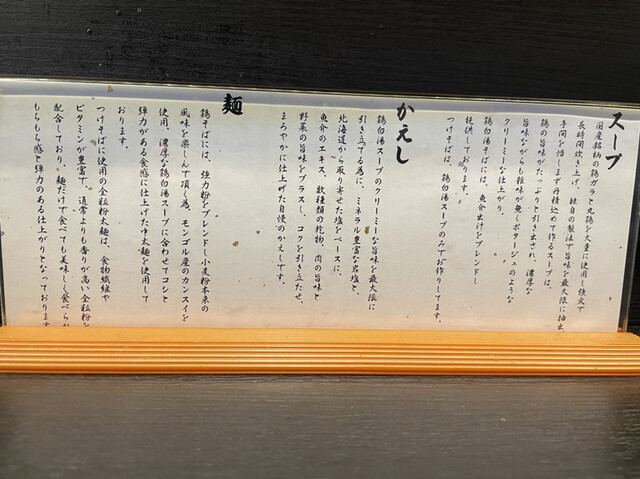 スープ
国産銘柄の鶏ガラと丸鶏を大量に使用し強火で
長時間炊き上げ、独自の製法で旨味を最大限に抽出
手間を惜しまず丹精込めて作るスープは、
鶏の旨味がたっぷりと引き出され、濃厚な
旨味ながらも雑味が無くポタージュのような
クリーミーな仕上がり。
鶏白湯そばには、魚介出汁をブレンドし
提供しております。
つけそばは、鶏白湯スープのみでお作りしてます。
かえし
鶏白湯スープのクリーミーな旨味を最大限に
引き立てる為に、ミネラル豊富な岩塩と、
北海道から取り寄せた塩をベースに、
魚介のエキス、数種類の乾物、肉の旨味と
野菜の旨味をプラスし、コクを引き立たせ、
まろやかに仕上げた自慢のかえしです。
麺
鶏そばには、強力粉をブレンドし小麦粉本来の
風味を楽しんで頂く為、モンゴル産のカンスイを
使用。濃厚な鶏白湯スープに合わせてコシと
弾力がある食感に仕上げた中太麺を使用して
おります。
つけそばに使用の全粒粉太麺は、食物繊維や
ビタミンが豊富で、通常よりも香りが高い全粒粉を
配合しており、麺だけで食べても美味しく食べられ
もちもち感と弾力のある仕上がりとなっております